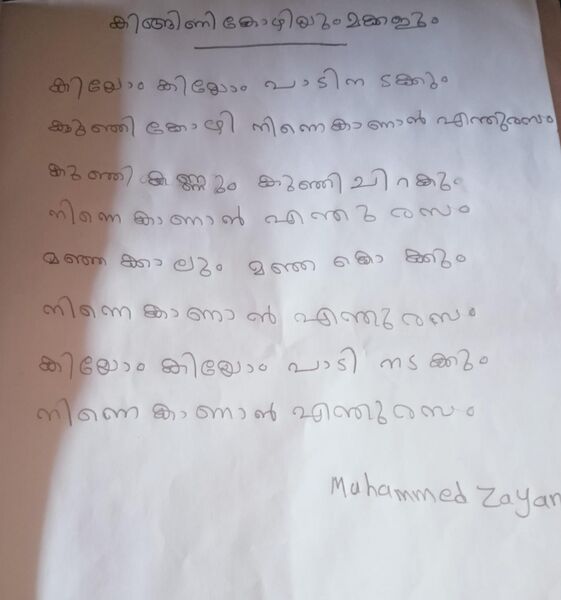 കിങ്ങിണി കോഴിയും മക്കളും
കിയോം കിയോം പാടി നടക്കും
കുഞ്ഞി കോഴി നിന്നെ കാണാൻ എന്തുരസം
കുഞ്ഞി കണ്ണും കുഞ്ഞി ചിറകും
നിന്നെ കാണാൻ എന്തു രസം
മഞ്ഞ കാലും മഞ്ഞ കൊക്കും
നിന്നെ കാണാൻ എന്തുരസം
കിയോം കിയോം പാടി നടക്കും
നിന്നെ കാണാൻ എന്തുരസം
Muhammed Zayan